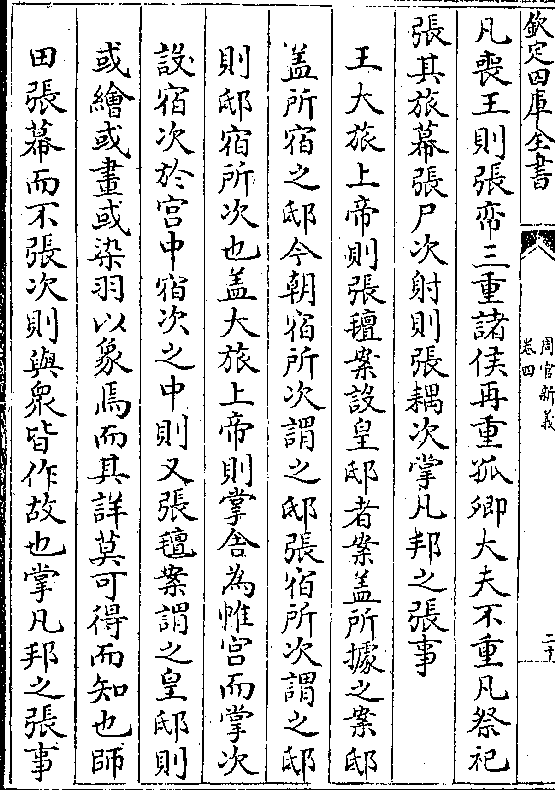 欽定四庫全書
周官新義
卷四
二十
凡喪王則張帟三重諸侯再重孤卿大夫不重凡祭祀
張其旅幕張尸次射則張耦次掌凡邦之張事
王大旅上帝則張氊案設皇邸者案盖所據之案邸
盖所宿之邸今朝宿所次謂之邸張宿所次謂之邸
則邸宿所次也盖大旅上帝則掌舍為帷宫而掌次
設宿次於宫中宿次之中則又張氊案謂之皇邸則
或繪或畫或染羽以象焉而其詳莫可得而知也師
田張幕而不張次則與衆皆作故也掌凡邦之張事